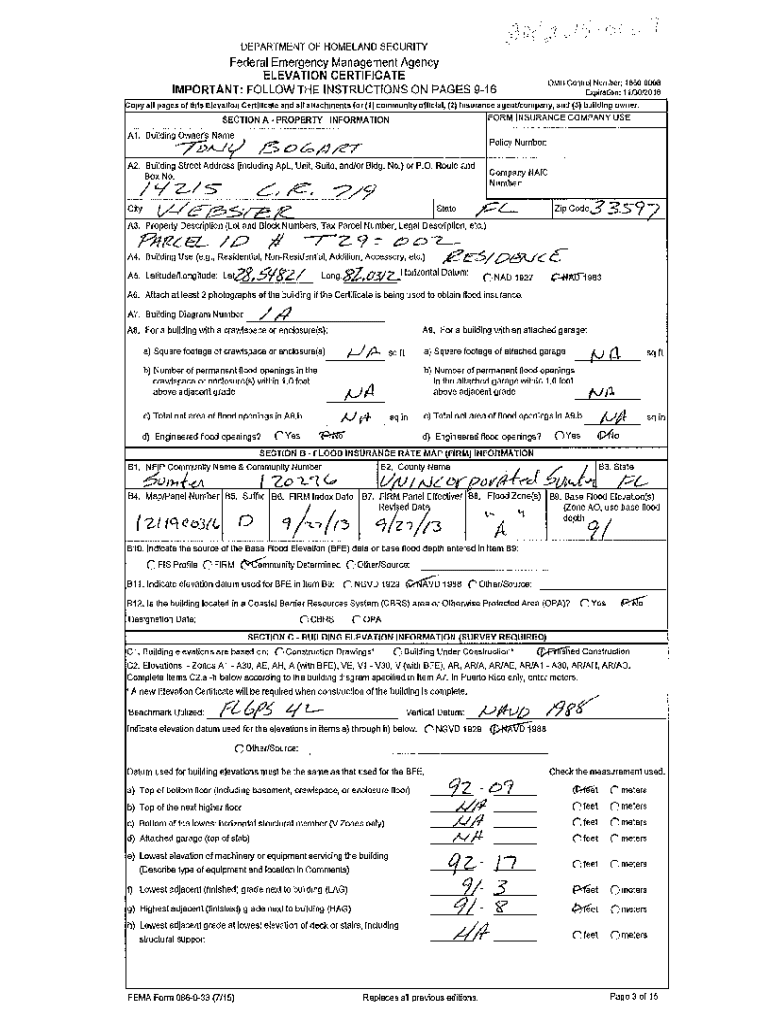 DEPARTMENT OF HOMELAND SECURITY
Federal Emergency Management Agency
ELEVATION CERTIFICATE
IMPORTANT: FOLLOW THE INSTRUCTIONS ON PAGES 9-16
OMB Control Number: 1660-0008
Expiration: 11/30/2018
Copy all pages of this Elevation Certificate and all attachments for (1) community official, (2) insurance agent/company, and (3) building owner.
SECTION A - PROPERTY INFORMATION FORM INSURANCE COMPANY USE
A1. Building Owner's Name
TONY BOGART
Policy Number:
A2. Building Street Address (including Apt., Unit, Suite, and/or Bldg. No.) or P.O. Route and
Box No.
14215 C.R. 719
Company NAIC
Number:
City WEBSTER State FL Zip Code 33597
A3. Property Description (Lot and Block Numbers, Tax Parcel Number, Legal Description, etc.)
PARCEL ID # T29-002
A4. Building Use (e.g., Residential, Non-Residential, Addition, Accessory, etc.) RESIDENCE
A5. Latitude/Longitude: Lat 28.54821 Long. 82.0312 Horizontal Datum: NAD 1927 NAD 1983
A6. Attach at least 2 photographs of the building if the Certificate is being used to obtain flood insurance.
A7. Building Diagram Number 1A
A8. For a building with a crawlspace or enclosure(s): A9. For a building with an attached garage:
a) Square footage of crawlspace or enclosure(s) N/A sq ft a) Square footage of attached garage NA sq ft
b) Number of permanent flood openings in the
crawlspace or enclosure(s) within 1.0 foot
above adjacent grade NA
b) Number of permanent flood openings
in the attached garage within 1.0 foot
above adjacent grade NA
c) Total net area of flood openings in A8.b NA sq in c) Total net area of flood openings in A9.b NA sq in
d) Engineered flood openings? Yes No d) Engineered flood openings? Yes No
SECTION B - FLOOD INSURANCE RATE MAP (FIRM) INFORMATION
B1. NFIP Community Name & Community Number B2. County Name B3. State
Sumter 120296 UNINCorporated Sumter FL
B4. Map/Panel Number B5. Suffix B6. FIRM Index Date B7. FIRM Panel Effective/ Revised Date B8. Flood Zone(s) B9. Base Flood Elevation(s)
(Zone AO, use base flood
depth)
D 9/27/13 9/27/13 "A" 91
B10. Indicate the source of the Base Flood Elevation (BFE) data or base flood depth entered in Item B9:
FIS Profile FIRM Community Determined Other/Source:
B11. Indicate elevation datum used for BFE in Item B9: NGVD 1929 NAVD 1988 Other/Source:
B12. Is the building located in a Coastal Barrier Resources System (CBRS) area or Otherwise Protected Area (OPA)? Yes No
Designation Date: CBRS OPA
SECTION C - BUILDING ELEVATION INFORMATION (SURVEY REQUIRED)
C1. Building elevations are based on: Construction Drawings* Building Under Construction* Finished Construction
C2. Elevations - Zones A1 - A30, AE, AH, A (with BFE), VE, V1 - V30, V (with BFE), AR, AR/A, AR/AE, AR/A1 - A30, AR/AH, AR/AO.
Complete Items C2.a -h below according to the building diagram specified in Item A7. In Puerto Rico only, enter meters.
* A new Elevation Certificate will be required when construction of the building is complete.
Benchmark Utilized: FLGPS 42 Vertical Datum: NAVD 1988
Indicate elevation datum used for the elevations in items a) through h) below. NGVD 1929 NAVD 1988
Other/Source:
Datum used for building elevations must be the same as that used for the BFE. Check the measurement used.
a) Top of bottom floor (including basement, crawlspace, or enclosure floor) 92-09 feet meters
b) Top of the next higher floor N/A feet meters
c) Bottom of the lowest horizontal structural member (V Zones only) NA feet meters
d) Attached garage (top of slab) NA feet meters
e) Lowest elevation of machinery or equipment servicing the building
(Describe type of equipment and location in Comments) 92-17 feet meters
f) Lowest adjacent (finished) grade next to building (LAG) 91-3 feet meters
g) Highest adjacent (finished) grade next to building (HAG) 91-8 feet meters
h) Lowest adjacent grade at lowest elevation of deck or stairs, including
structural support NA feet meters
FEMA Form 086-0-33 (7/15) Replaces all previous editions. Page 3 of 15